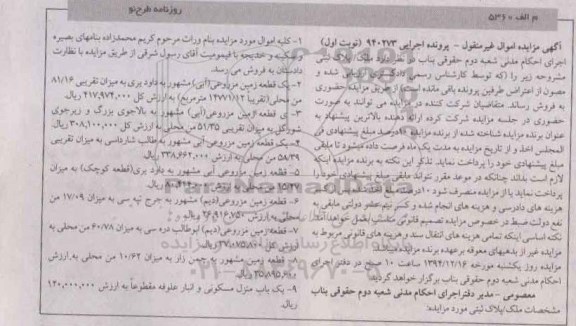 م الف ۵۳۶۰
روزنامه طرح‌نو
آگهی مزایده اموال غیرمنقول - پرونده اجرایی ۹۴۰۲۷۳ (نوبت اول)
اجرای احکام مدنی شعبه دوم حقوقی بناب در نظر دارد ملک/پلاک ثبتی
مشروحه زیر را (که توسط کارشناس رسمی دادگستری ارزیابی شده و
مصون از اعتراض طرفین پرونده باقی مانده است) از طریق مزایده حضوری
به فروش رساند. متقاضیان شرکت کننده در مزایده می توانند به صورت
حضوری در جلسه مزایده شرکت کرده ارائه دهنده بالاترین پیشنهاد به
عنوان برنده مزایده شناخته شده از برنده مزایده ۱۰درصد مبلغ پیشنهادی فی
المجلس اخذ و از تاریخ مزایده به مدت یک ماه فرصت داده میشود تا مابقی
مبلغ پیشنهادی خود را پرداخت نماید. تذکر این نکته به برنده مزایده اینکه
لازم است بداند چنانکه در موعد مقرر نتواند مابقی مبلغ پیشنهادی خود را
پرداخت نماید یا از مزایده منصرف شود ۱۰درصد
هزینه های دادرسی و هزینه های انجام شده و کسر نیم عشر دولتی مابقی به
نفع دولت ضبط در خصوص مزایده تصمیم قانونی مناسب بعمل خواهد آمد.
نکته اساسی اینکه تمامی هزینه های انتقال سند و هزینه های قانونی مربوط به
مزایده غیر از بدهیهای معوقه برعهده برنده مزایده
مزایده روز یکشنبه مورخه ۱۳۹۴/۱۲/۱۶ ساعت ۱۰ صبح در دفتر اجرای
احکام مدنی شعبه دوم حقوقی بناب برگزار خواهد گردید.
معصومی - مدیر دفتراجرای احکام مدنی شعبه دوم حقوقی بناب
مشخصات ملک/پلاک ثبتی مورد مزایده:
۱- کلیه اموال مورد مزایده بنام وراث مرحوم کریم محمدزاده بنامهای بصیره
و سکینه و خدیجه با قیمومیت آقای رسول شرقی از طریق مزایده با نظارت
دادستان به فروش می رسد.
۲- یک قطعه زمین مزروعی(آبی) مشهور به داود یری به میزان تقریبی ۸۱/۱۶
من محلی(تقریباً ۱۳۷۷۱/۱۲ مترمربع) به ارزش کل ۴۱۷,۹۷۴,۰۰۰ ریال.
۳- ی قطعه زمین مزروعی(آبی) مشهور به بالاجوی بزرگ و زیرجوی
شورگل به میزان تقریبی ۵۱/۳۵ من محلی به ارزش کل ۳۰۸,۱۰۰,۰۰۰ ریال.
۴- یک قطعه زمین مزروعی آبی مشهور به طالب شارداسی به میزان تقریبی
۵۸/۳۹ من محلی به ارزش ۳۳۸,۶۶۲,۰۰۰ ریال.
۵- قطعه زمین مزروعی آبی مشهور به داود یری(قطعه کوچک) به میزان
۶- قطعه زمین مزروعی(دیم) مشهور به جرج تپه سی به میزان ۱۷/۰۹ من
محلی به ارزش ۲۶,۹۱۶,۷۵۰ ریال.
۷- قطعه زمین مزروعی(دیم) ابوطالب دره سی به میزان ۶۰/۷۸ من محلی به
۸- قطعه زمین مشهور به چمن زار به میزان ۱۰/۶۲ من محلی به ارزش
۹- یک باب منزل مسکونی و انبار علوفه مقطوعاً به ارزش ۱۲۰,۰۰۰,۰۰۰
ریال.